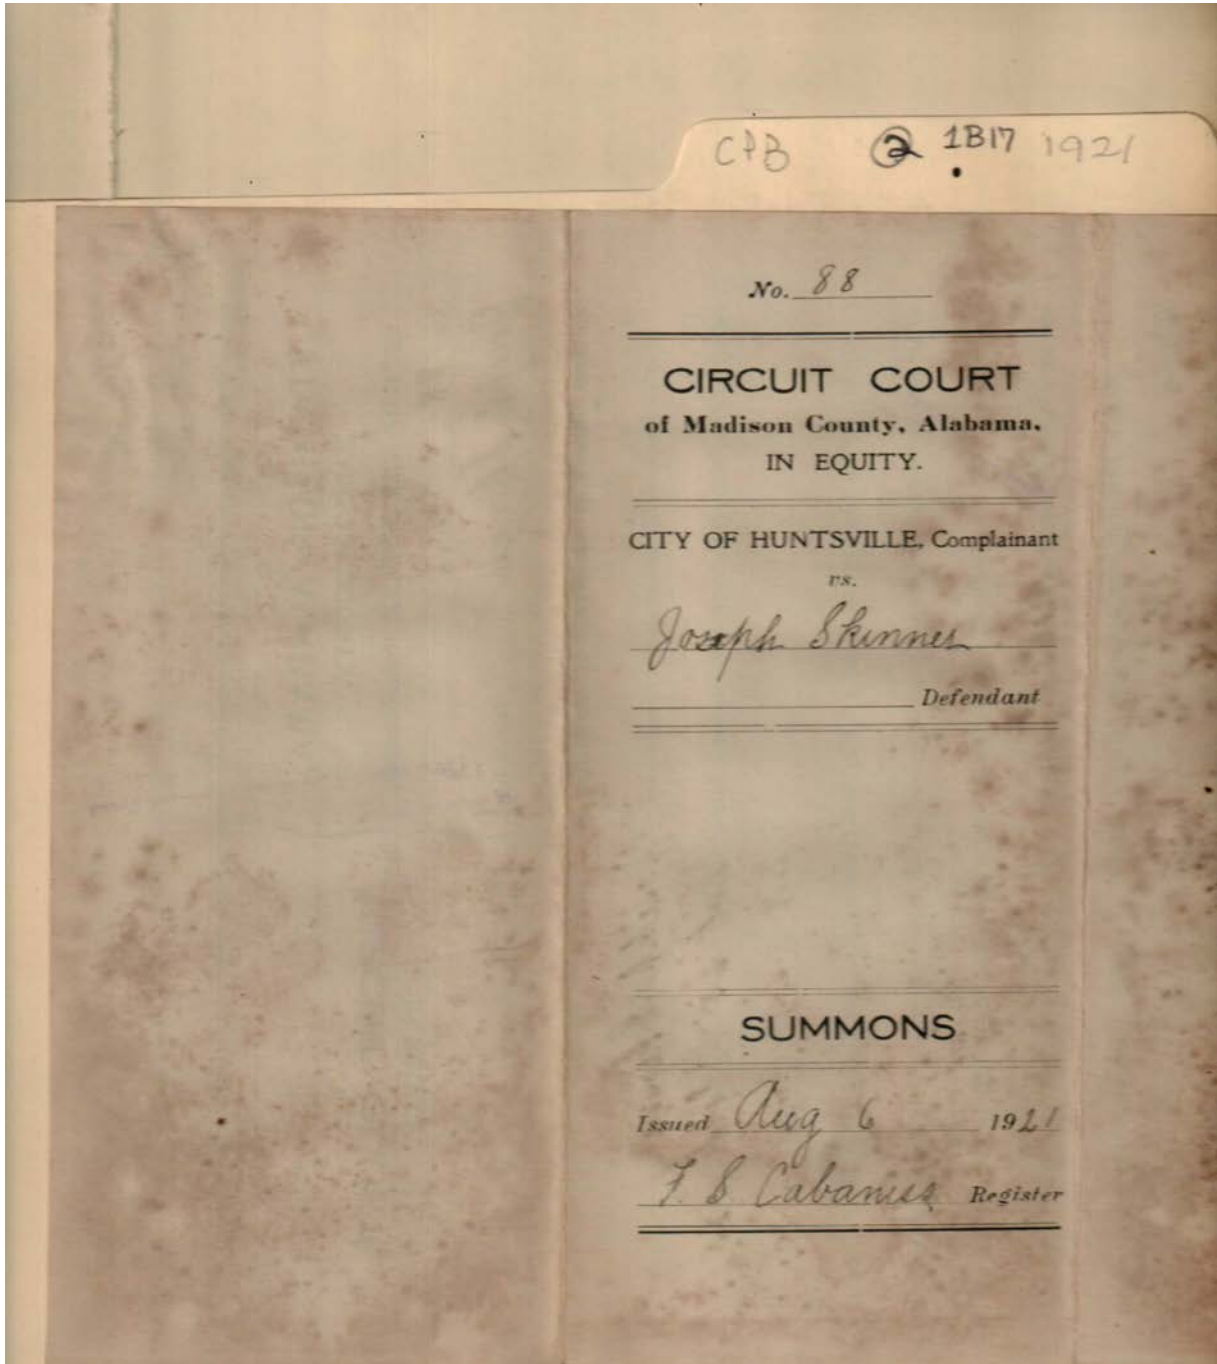 CPB 2 1B17 1921
No. 88
CIRCUIT COURT
of Madison County, Alabama.
IN EQUITY.
CITY OF HUNTSVILLE, Complainant
vs.
Joseph Skinner
Defendant
SUMMONS
Issued Aug 6 1921
F. S. Cabaniss Register